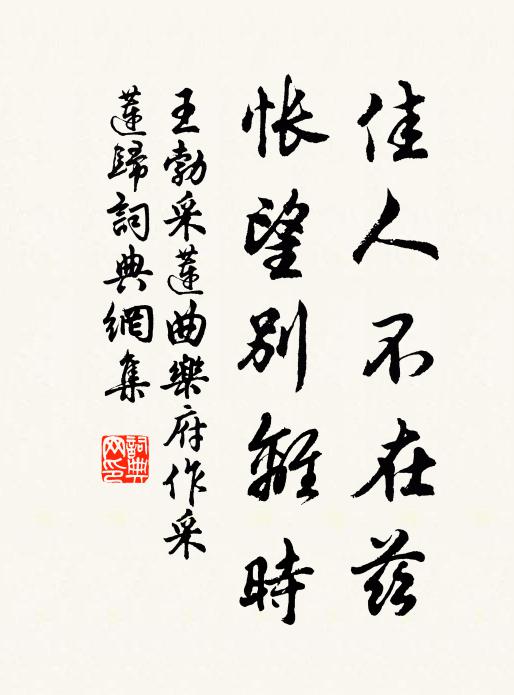 佳人不在茲
悵望別離時
王勃采蓮曲樂府作采
蓮歸詞典網集
詞典网印